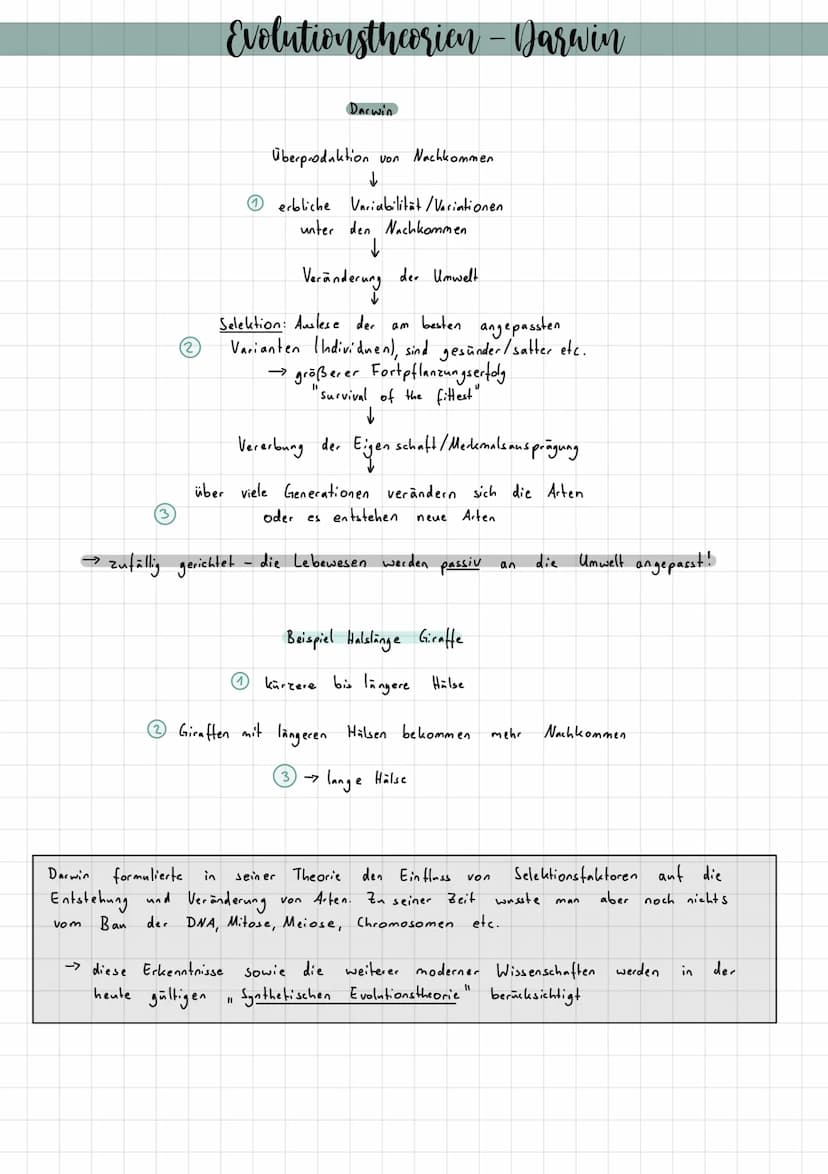 Evolutionstheorien – Darwin
Darwin
Überproduktion von Nachkommen
↓
① erbliche Variabilität/Variationen
unter den Nachkommen
↓
Veränderung der Umwelt
↓
Selektion: Auslese der am besten angepassten
② Varianten (Individuen), sind gesünder/satter etc.
→ größerer Fortpflanzungserfolg
"survival of the fittest"
↓
Vererbung der Eigenschaft/Merkmalsausprägung
↓
über viele Generationen verändern sich die Arten
③ oder es entstehen neue Arten
→ zufällig gerichtet – die Lebewesen werden passiv an die Umwelt angepasst!
Beispiel Halslänge Giraffe
① kürzere bis längere Hälse
② Giraffen mit längeren Hälsen bekommen mehr Nachkommen
③ → lange Hälse
Darwin formulierte in seiner Theorie den Einfluss von Selektionsfaktoren auf die
Entstehung und Veränderung von Arten. Zu seiner Zeit wusste man aber noch nichts
vom Bau der DNA, Mitose, Meiose, Chromosomen etc.
→ diese Erkenntnisse sowie die weiterer moderner Wissenschaften werden in der
heute gültigen „Synthetischen Evolutionstheorie" berücksichtigt